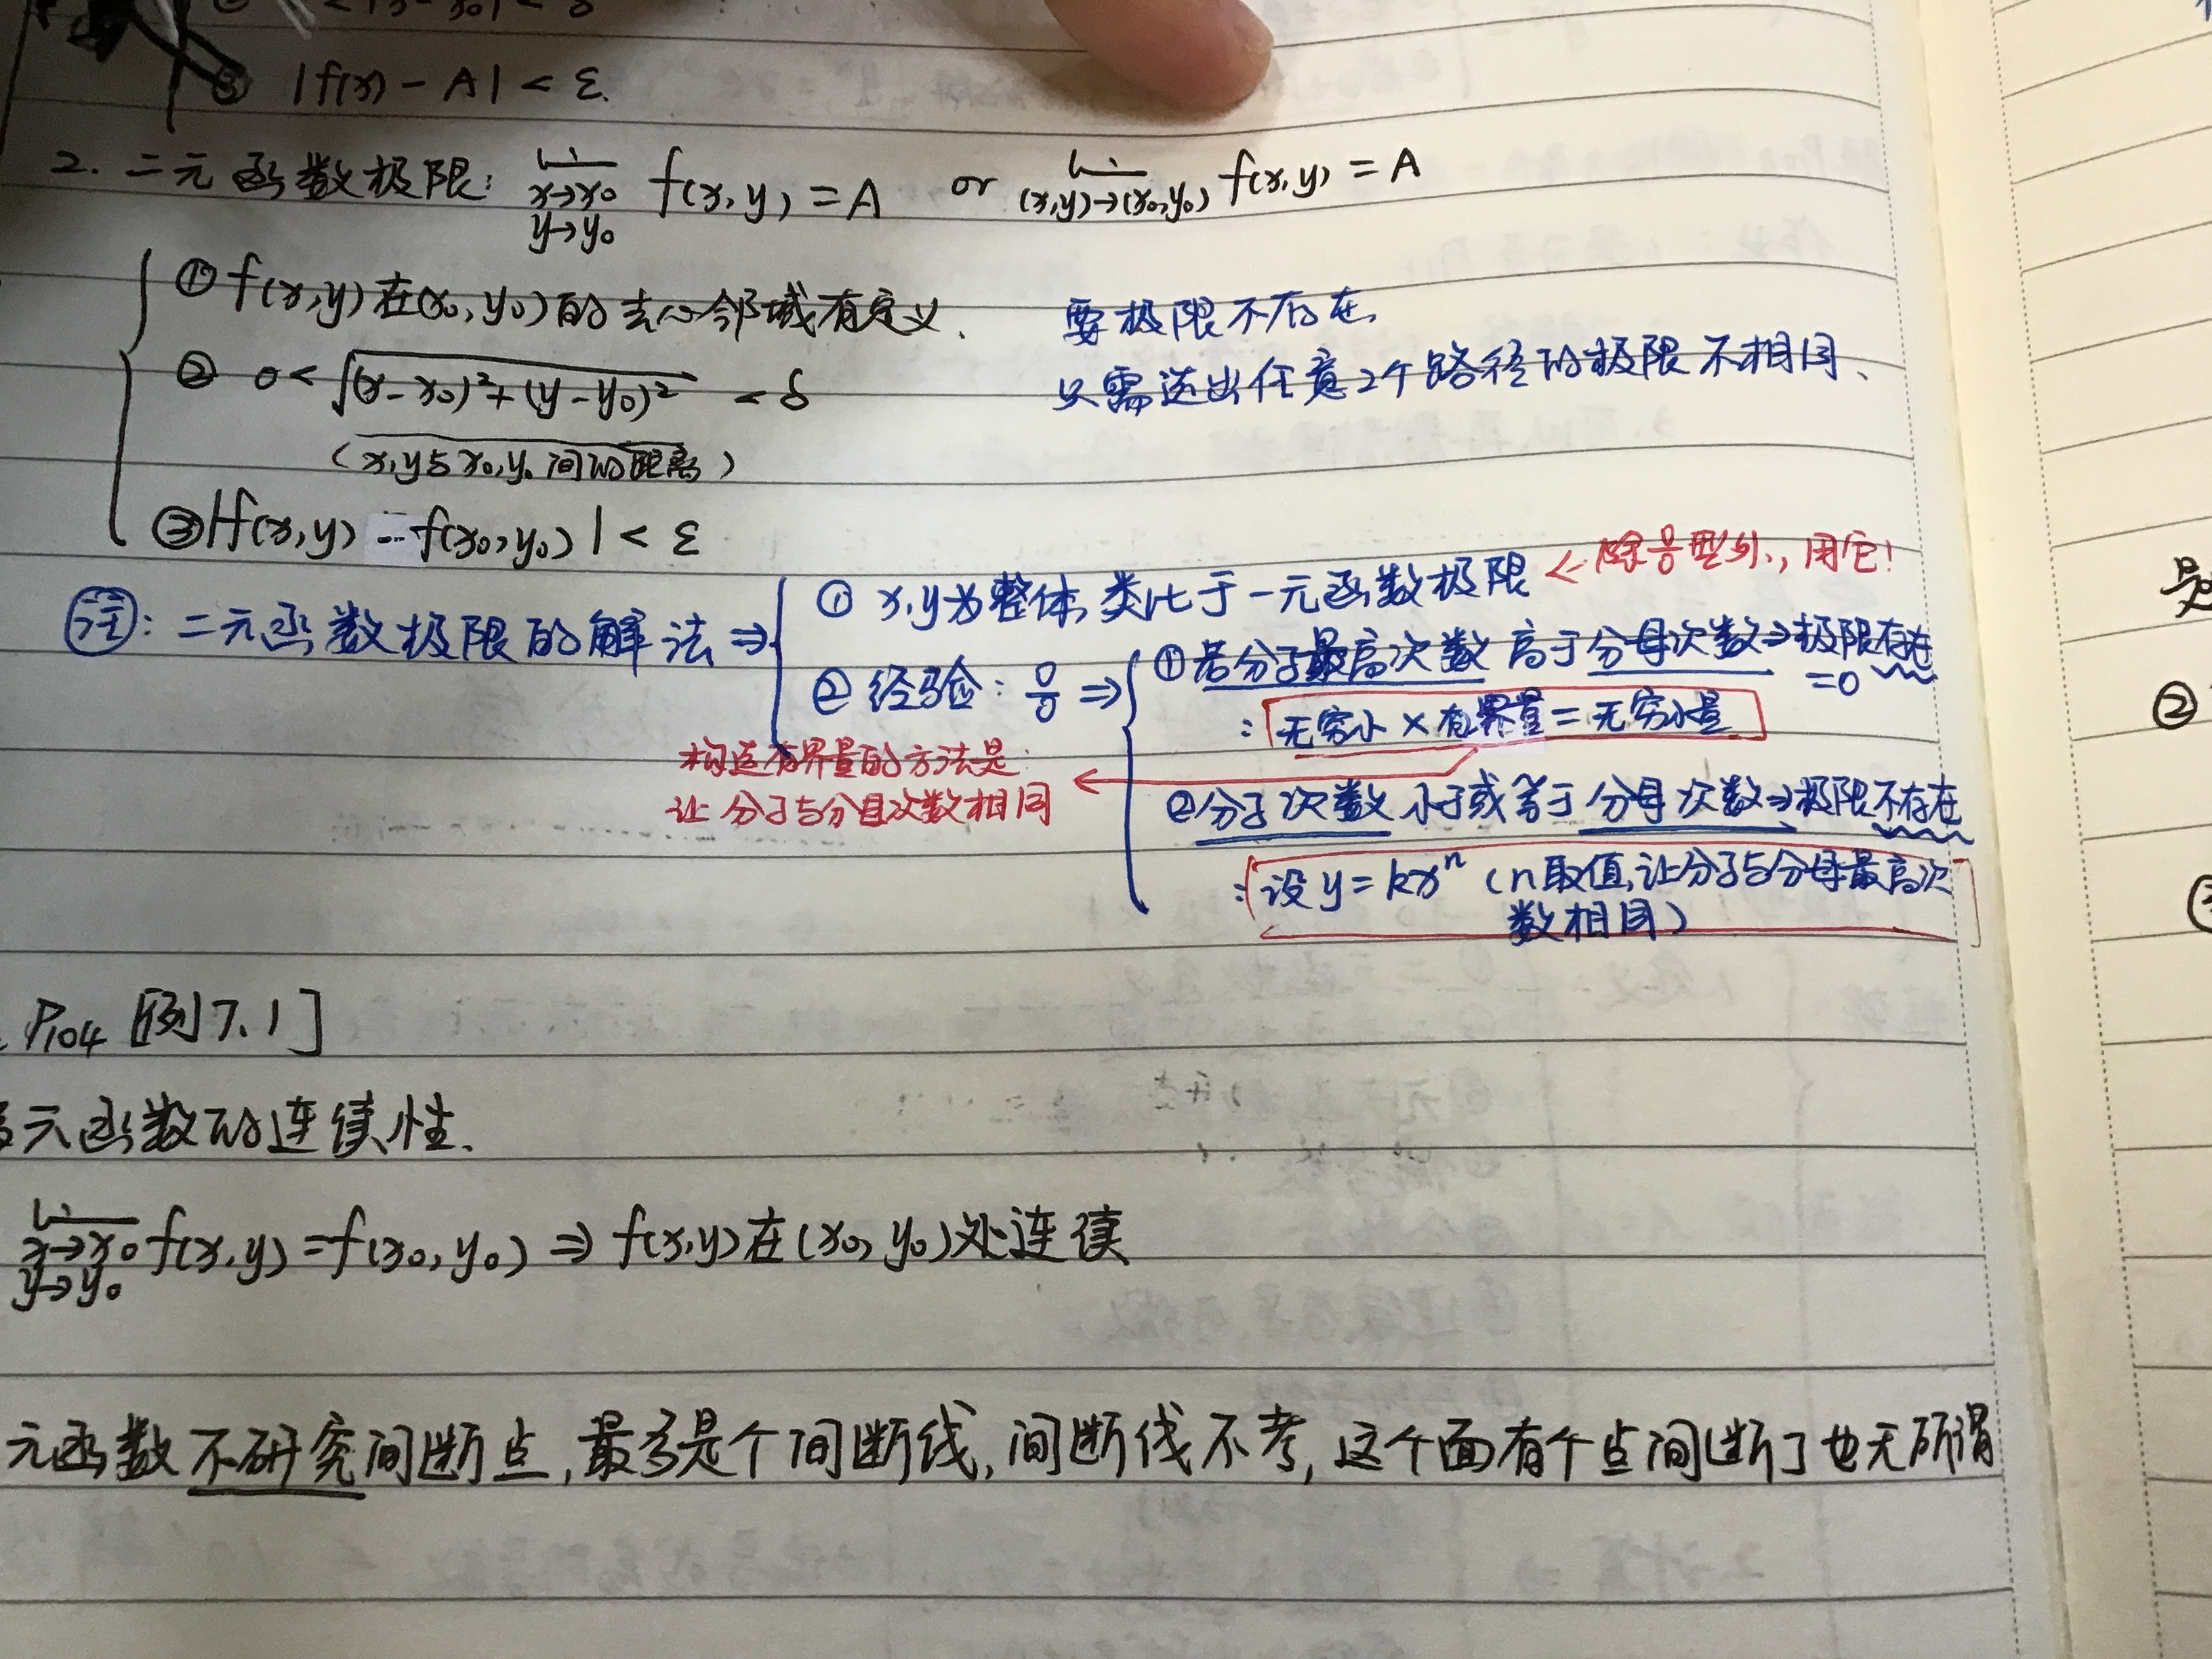 ③ |f(x) - A| < ε.
2. 二元函数极限: lim x→x0 y→y0 f(x,y) = A or lim (x,y)→(x0,y0) f(x,y) = A
① f(x,y)在(x0,y0)的去心邻域有定义.
要极限不存在,
只需选出任意2个路径的极限不相同、
② 0 < √(x-x0)²+(y-y0)² < δ
(x,y与x0,y0间的距离)
③ |f(x,y) - f(x0,y0)| < ε
注: 二元函数极限的解法 ⇒
① x,y为整体,类比于一元函数极限 ← 除0/0型外,用它!
② 经验: 0/0 ⇒
① 若分子最高次数高于分母次数⇒极限存在
=0
: 无穷小 × 有界量 = 无穷小量
*构造有界量的方法是
让分子与分母次数相同
② 分子次数小于或等于分母次数⇒极限不存在
: 设 y = kxⁿ (n取值,让分子与分母最高次
数相同)
P104 [例7.1]
元函数的连续性.
lim x→x0 y→y0 f(x,y) = f(x0,y0) ⇒ f(x,y)在(x0,y0)处连续
元函数不研究间断点,最多是个间断线,间断线不考,这个面有个点间断了也无所谓
②